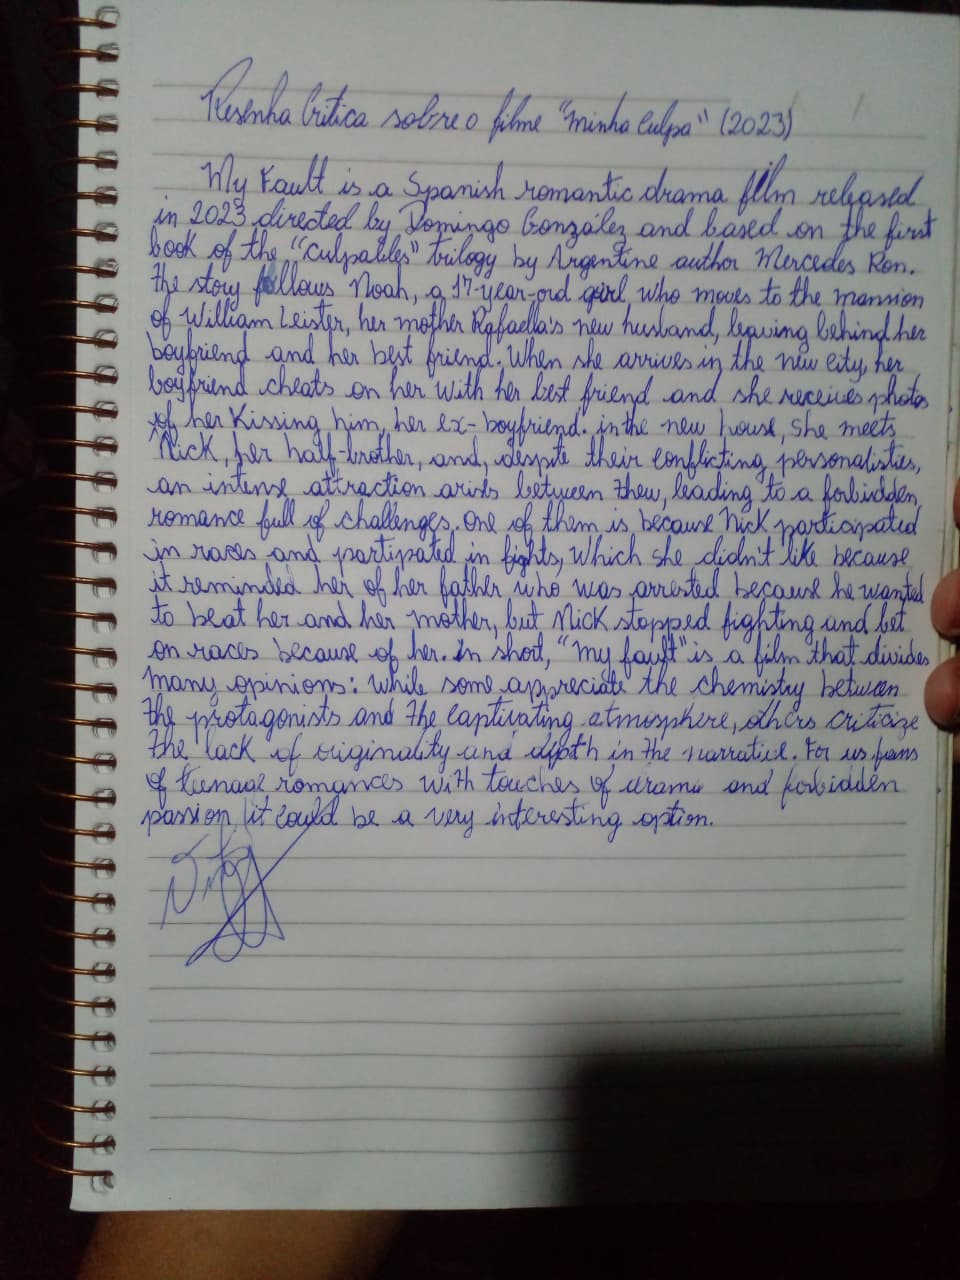 Resenha Critica sobre o filme "minha culpa" (2023)
My Fault is a Spanish romantic drama film released
in 2023 directed by Domingo González and based on the first
book of the "Culpables" trilogy by Argentine author Mercedes Ron.
The story follows Noah, a 17-year-ord girl, who moves to the mansion
of William Leister, her mother Rafaella's new husband, leaving behind her
boyfriend and her best friend. When she arrives in the new city, her
boyfriend cheats on her with her best friend and she receives photos
of her Kissing him, her ex-boyfriend. in the new house, she meets
Nick, her half-brother, and, despite their conflicting personalisties,
an intense attraction arises between them, leading to a forbidden
romance full of challenges. One of them is because Nick participated
in races and partipated in fights, which she didn't like because
it reminded her of her father who was arrested because he wanted
to beat her and her mother, but Nick stopped fighting and bet
on races because of her. In short, "my fault" is a film that divides
many opinions: while some appreciate the chemistry between
the protagonists and the captivating atmosphere, others criticize
the lack of originality and depth in the narrative. For us fans
of teenage romances with touches of drama and forbidden
passion, it could be a very interesting option.